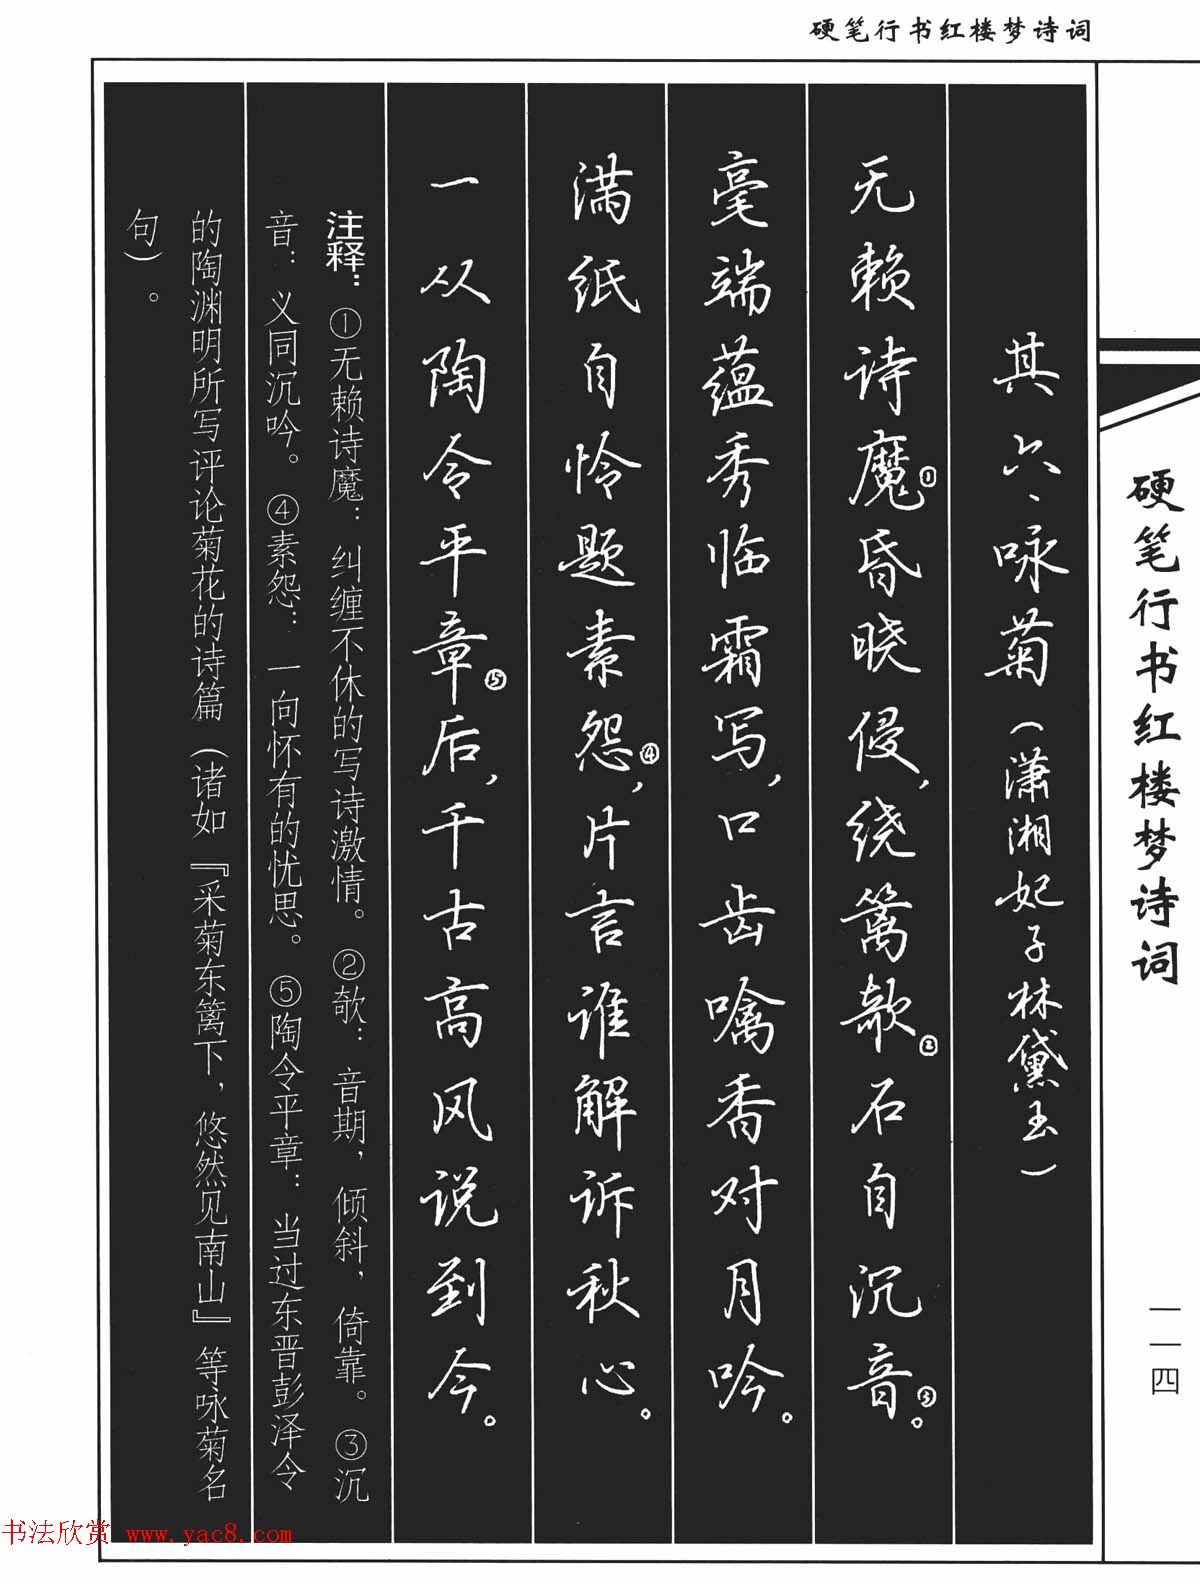 硬笔行书红楼梦诗词
硬笔行书红楼梦诗词
一一四
其六、咏菊（潇湘妃子林黛玉）
无赖诗魔①昏晓侵，绕篱欹②石自沉音③。
毫端蕴秀临霜写，口齿噙香对月吟。
满纸自怜题素怨④，片言谁解诉秋心。
一从陶令平章⑤后，千古高风说到今。
注释：①无赖诗魔：纠缠不休的写诗激情。②欹：音期，倾斜，倚靠。③沉
音：义同沉吟。④素怨：一向怀有的忧思。⑤陶令平章：当过东晋彭泽令
的陶渊明所写评论菊花的诗篇（诸如『采菊东篱下，悠然见南山』等咏菊名
句）。
书法欣赏 www.yac8.com